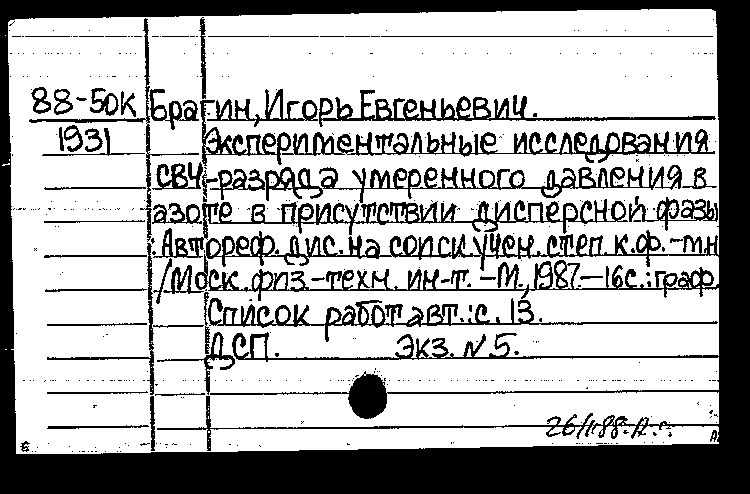 88-50К Брагин, Игорь Евгеньевич.
1931 Экспериментальные исследования
СВЧ-разряда умеренного давления в
азоте в присутствии дисперсной фазы
: Автореф. дис. на соиск. учен. степ. к. ф.-м н
/Моск. физ.-техн. ин-т. -М., 1987.-16с.: граф.
Список работ авт.: с. 13.
ДСП. Экз. N 5.